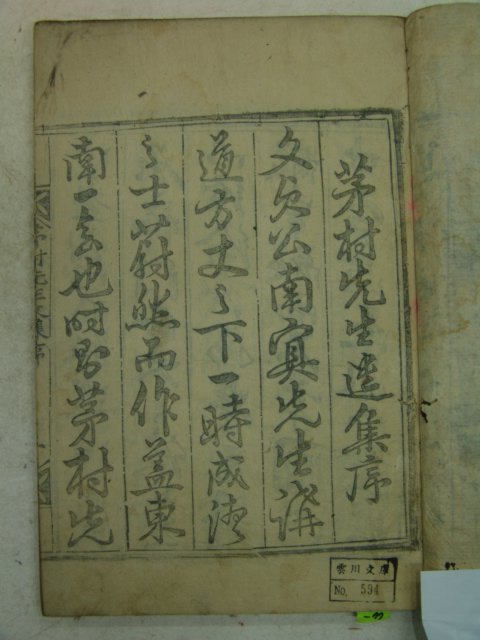 茅村先生遺集序
文貞公南冥先生講
道方丈之下一時成德
之士蔚然而作蓋東
南一會也時則茅村先
雲川文庫
No. 594